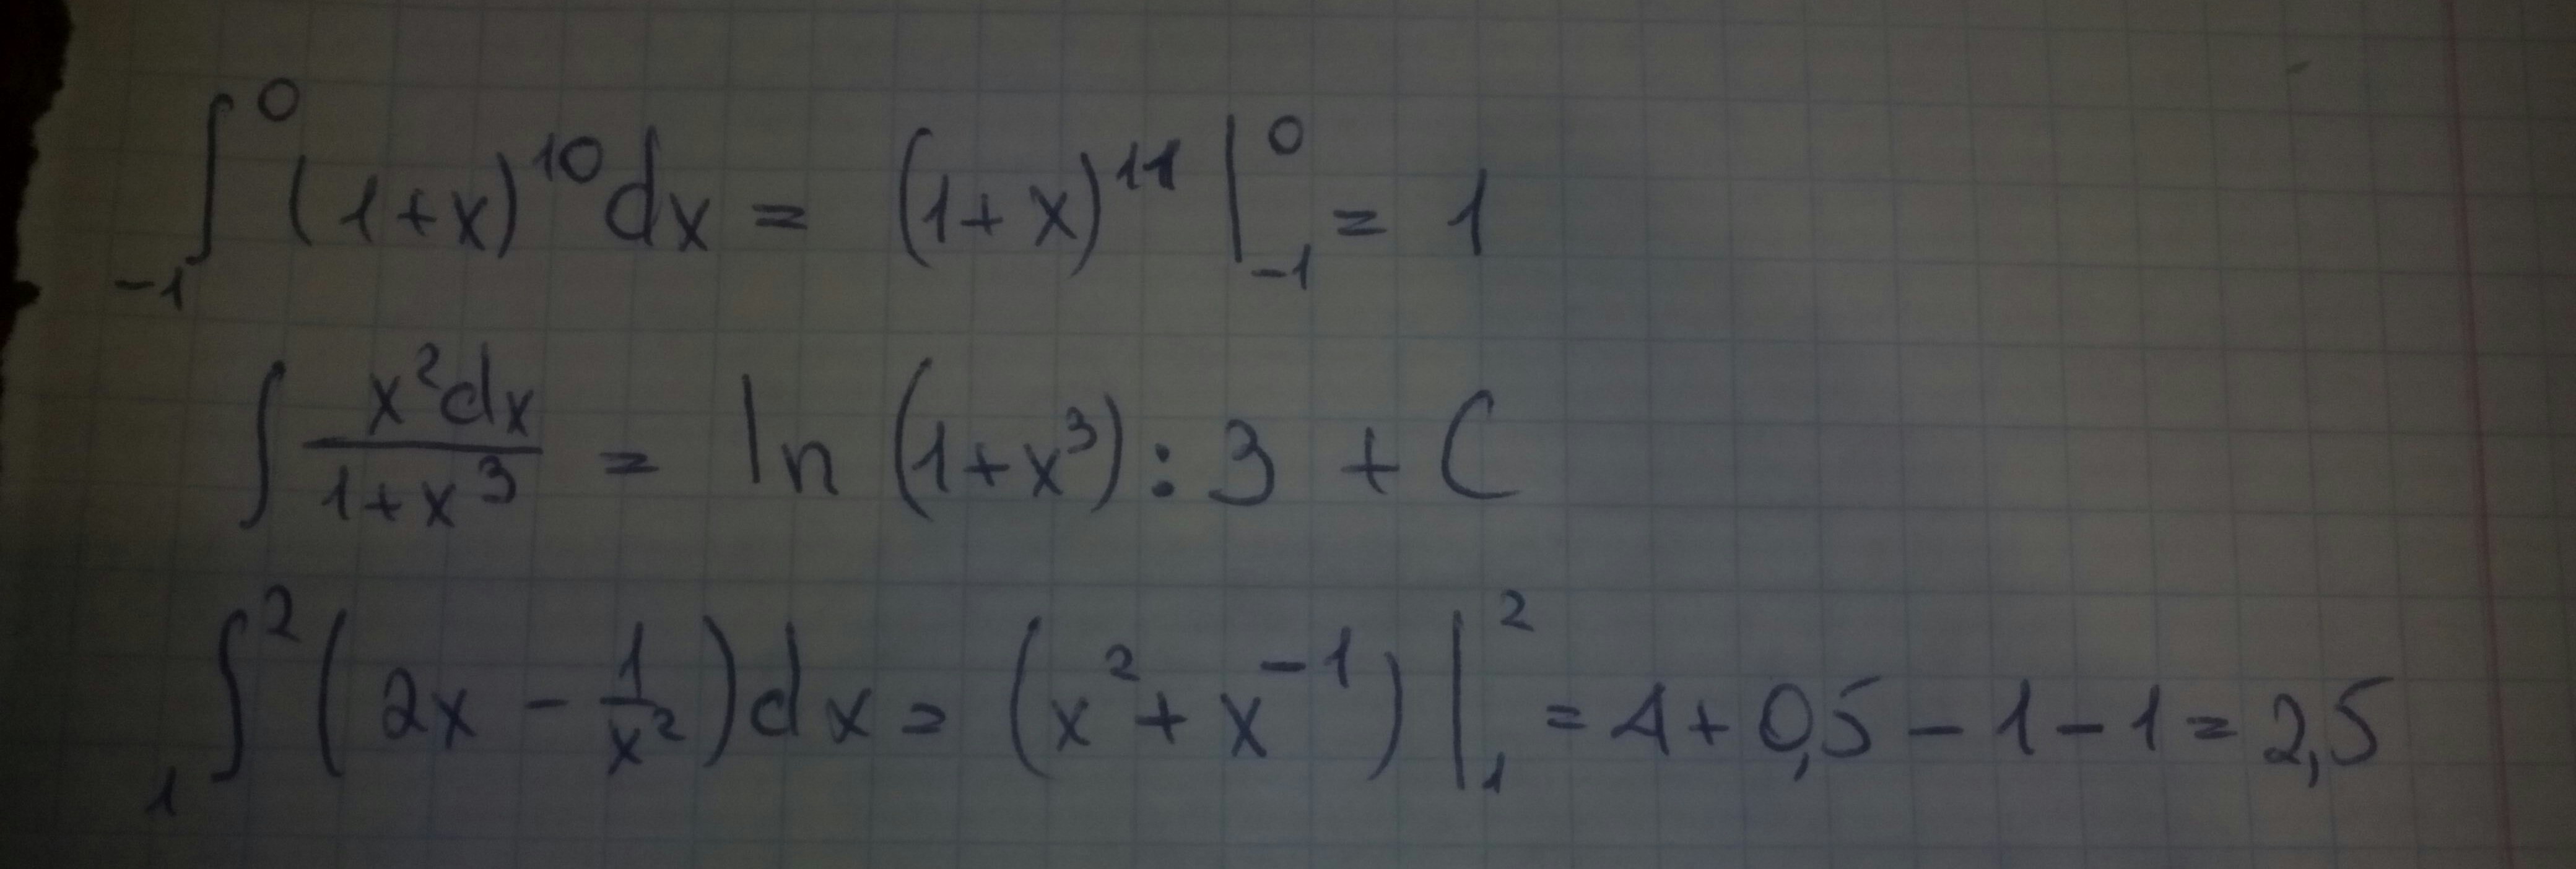 ∫₋₁⁰ (1+x)¹⁰dx = (1+x)¹¹ |₋₁⁰ = 1
∫ x²dx/(1+x³) = ln (1+x³) : 3 + C
∫₁² (2x − 1/x²)dx = (x² + x⁻¹) |₁² = 4 + 0,5 − 1 − 1 = 2,5